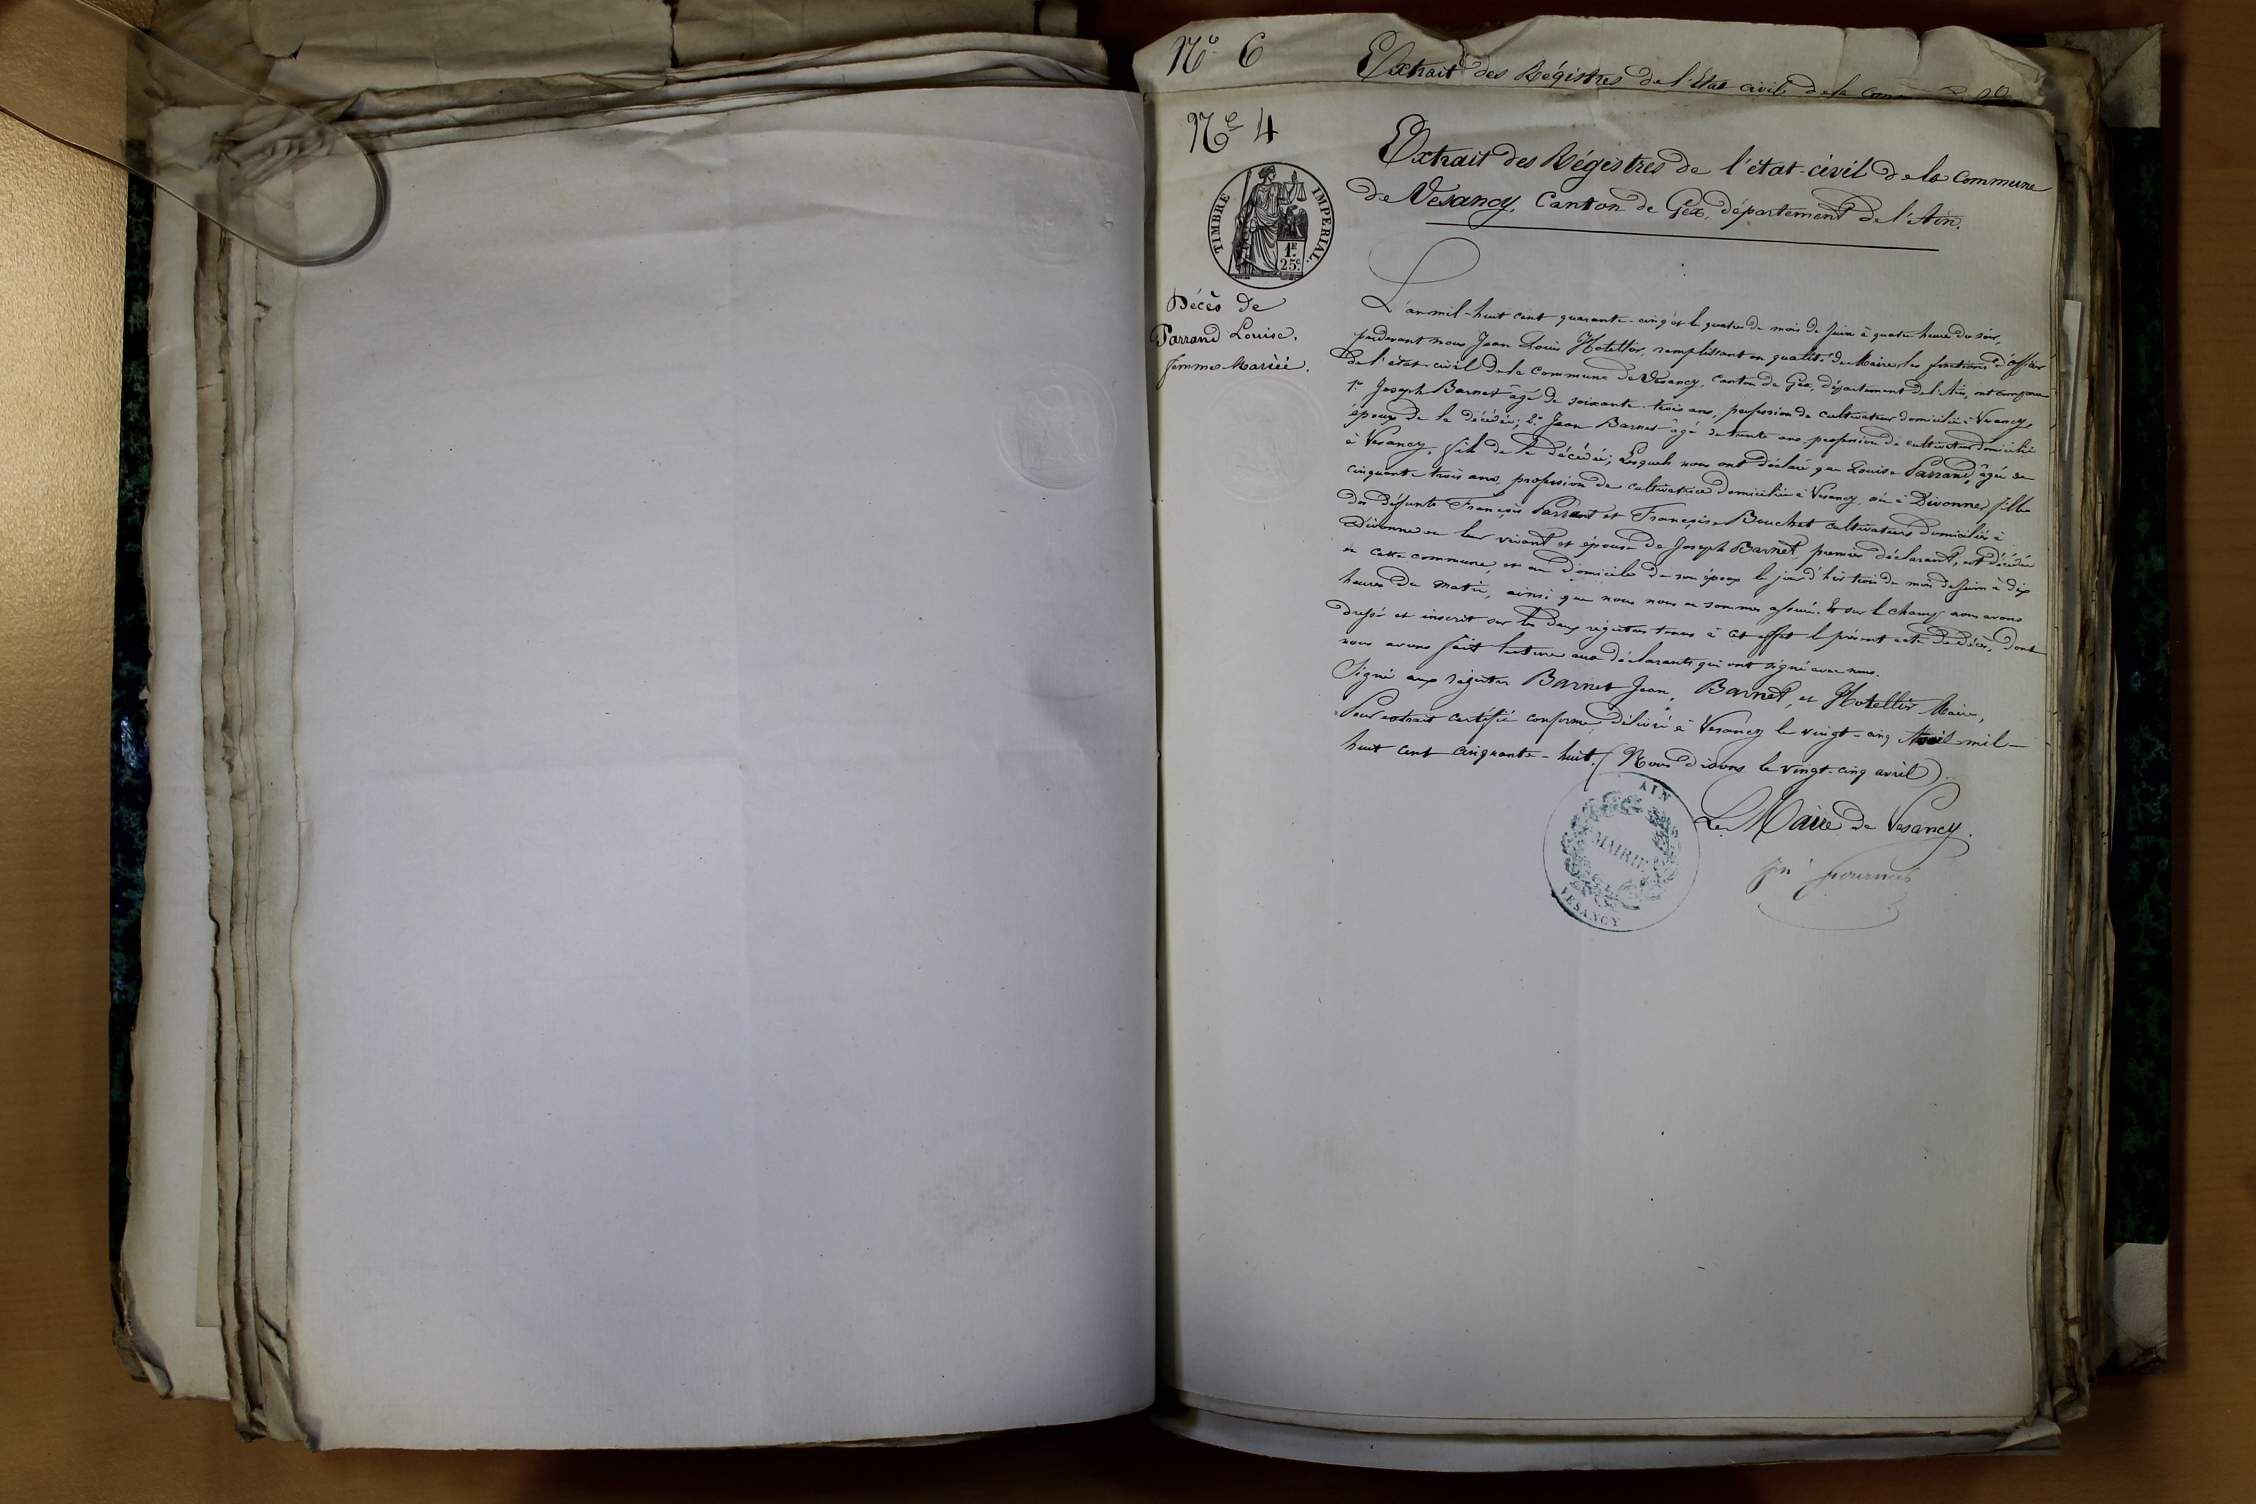 Nº 6
Extrait des Régistres de l'Etat civil de la
Nº 4
Extrait des Régistres de l'état-civil de la Commune
de Vesancy, Canton de Gex, département de l'Ain.
TIMBRE IMPERIAL.
1F
25c
Décès de
Parrand Louise.
femme Mariée.
L'an mil-huit cent quarante-cinq et le quatre du mois de Juin à quatre heures du soir,
pardevant nous Jean Louis Hotellier, remplissant en qualité de Maire les fonctions d'officier
de l'état-civil de la commune de Vesancy, canton de Gex, département de l'Ain, ont comparu
1º Joseph Barnet âgé de soixante-trois ans, profession de cultivateur domicilié à Vesancy,
époux de la décédée; 2º Jean Barnet âgé de trente ans profession de cultivateur domicilié
à Vesancy, fils de la décédée; Lesquels nous ont déclaré que Louise Parrand, âgée de
cinquante trois ans, profession de cultivatrice domiciliée à Vesancy, née à Divonne, fille
des défunts François Parrant et Françoise Bouchet cultivateurs domiciliés à
Divonne en leur vivant et épouse de Joseph Barnet, premier déclarant, est décédée
en cette commune, et au domicile de son époux le jour d'hier trois du mois de Juin à dix
heures du matin, ainsi que nous nous en sommes assuré. Et sur le champ nous avons
dressé et inscrit sur les deux registres tenus à cet effet le présent acte de décès, dont
nous avons fait lecture aux déclarants qui ont signé avec nous.
Signé aux registres Barnet Jean, Barnet, et Hotellier Maire,
Pour extrait certifié conforme, délivré à Vesancy le vingt-cinq Avril mil-
huit cent cinquante-huit. (Nous disons le vingt-cinq avril).
Le Maire de Vesancy.
AIN
MAIRIE
VESANCY